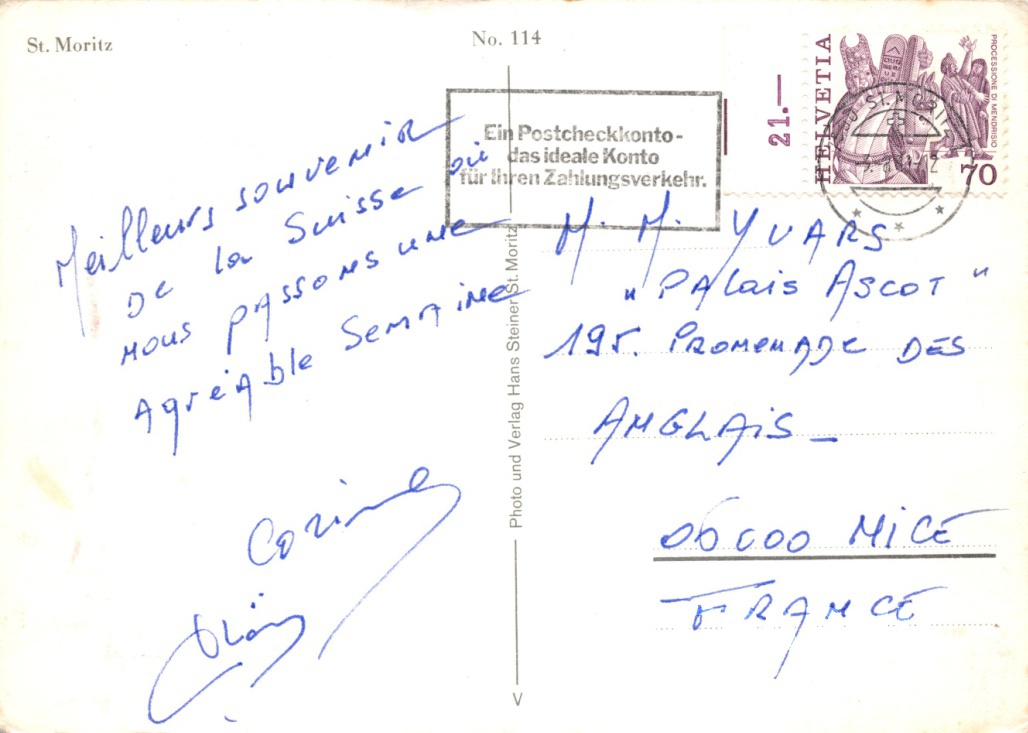 St. Moritz
No. 114
Ein Postcheckkonto-
das ideale Konto
für Ihren Zahlungsverkehr.
21.—
HELVETIA
PROCESSIONE DI MENDRISIO
70
Meilleurs souvenir
De la Suisse où
nous passons une
agréable Semaine
Corinne
M. M. YVARS
"PALais ASCOT"
195. PROMENADE DES
ANGLAIS_
06000 NICE
FRANCE
Photo und Verlag Hans Steiner, St. Moritz
V